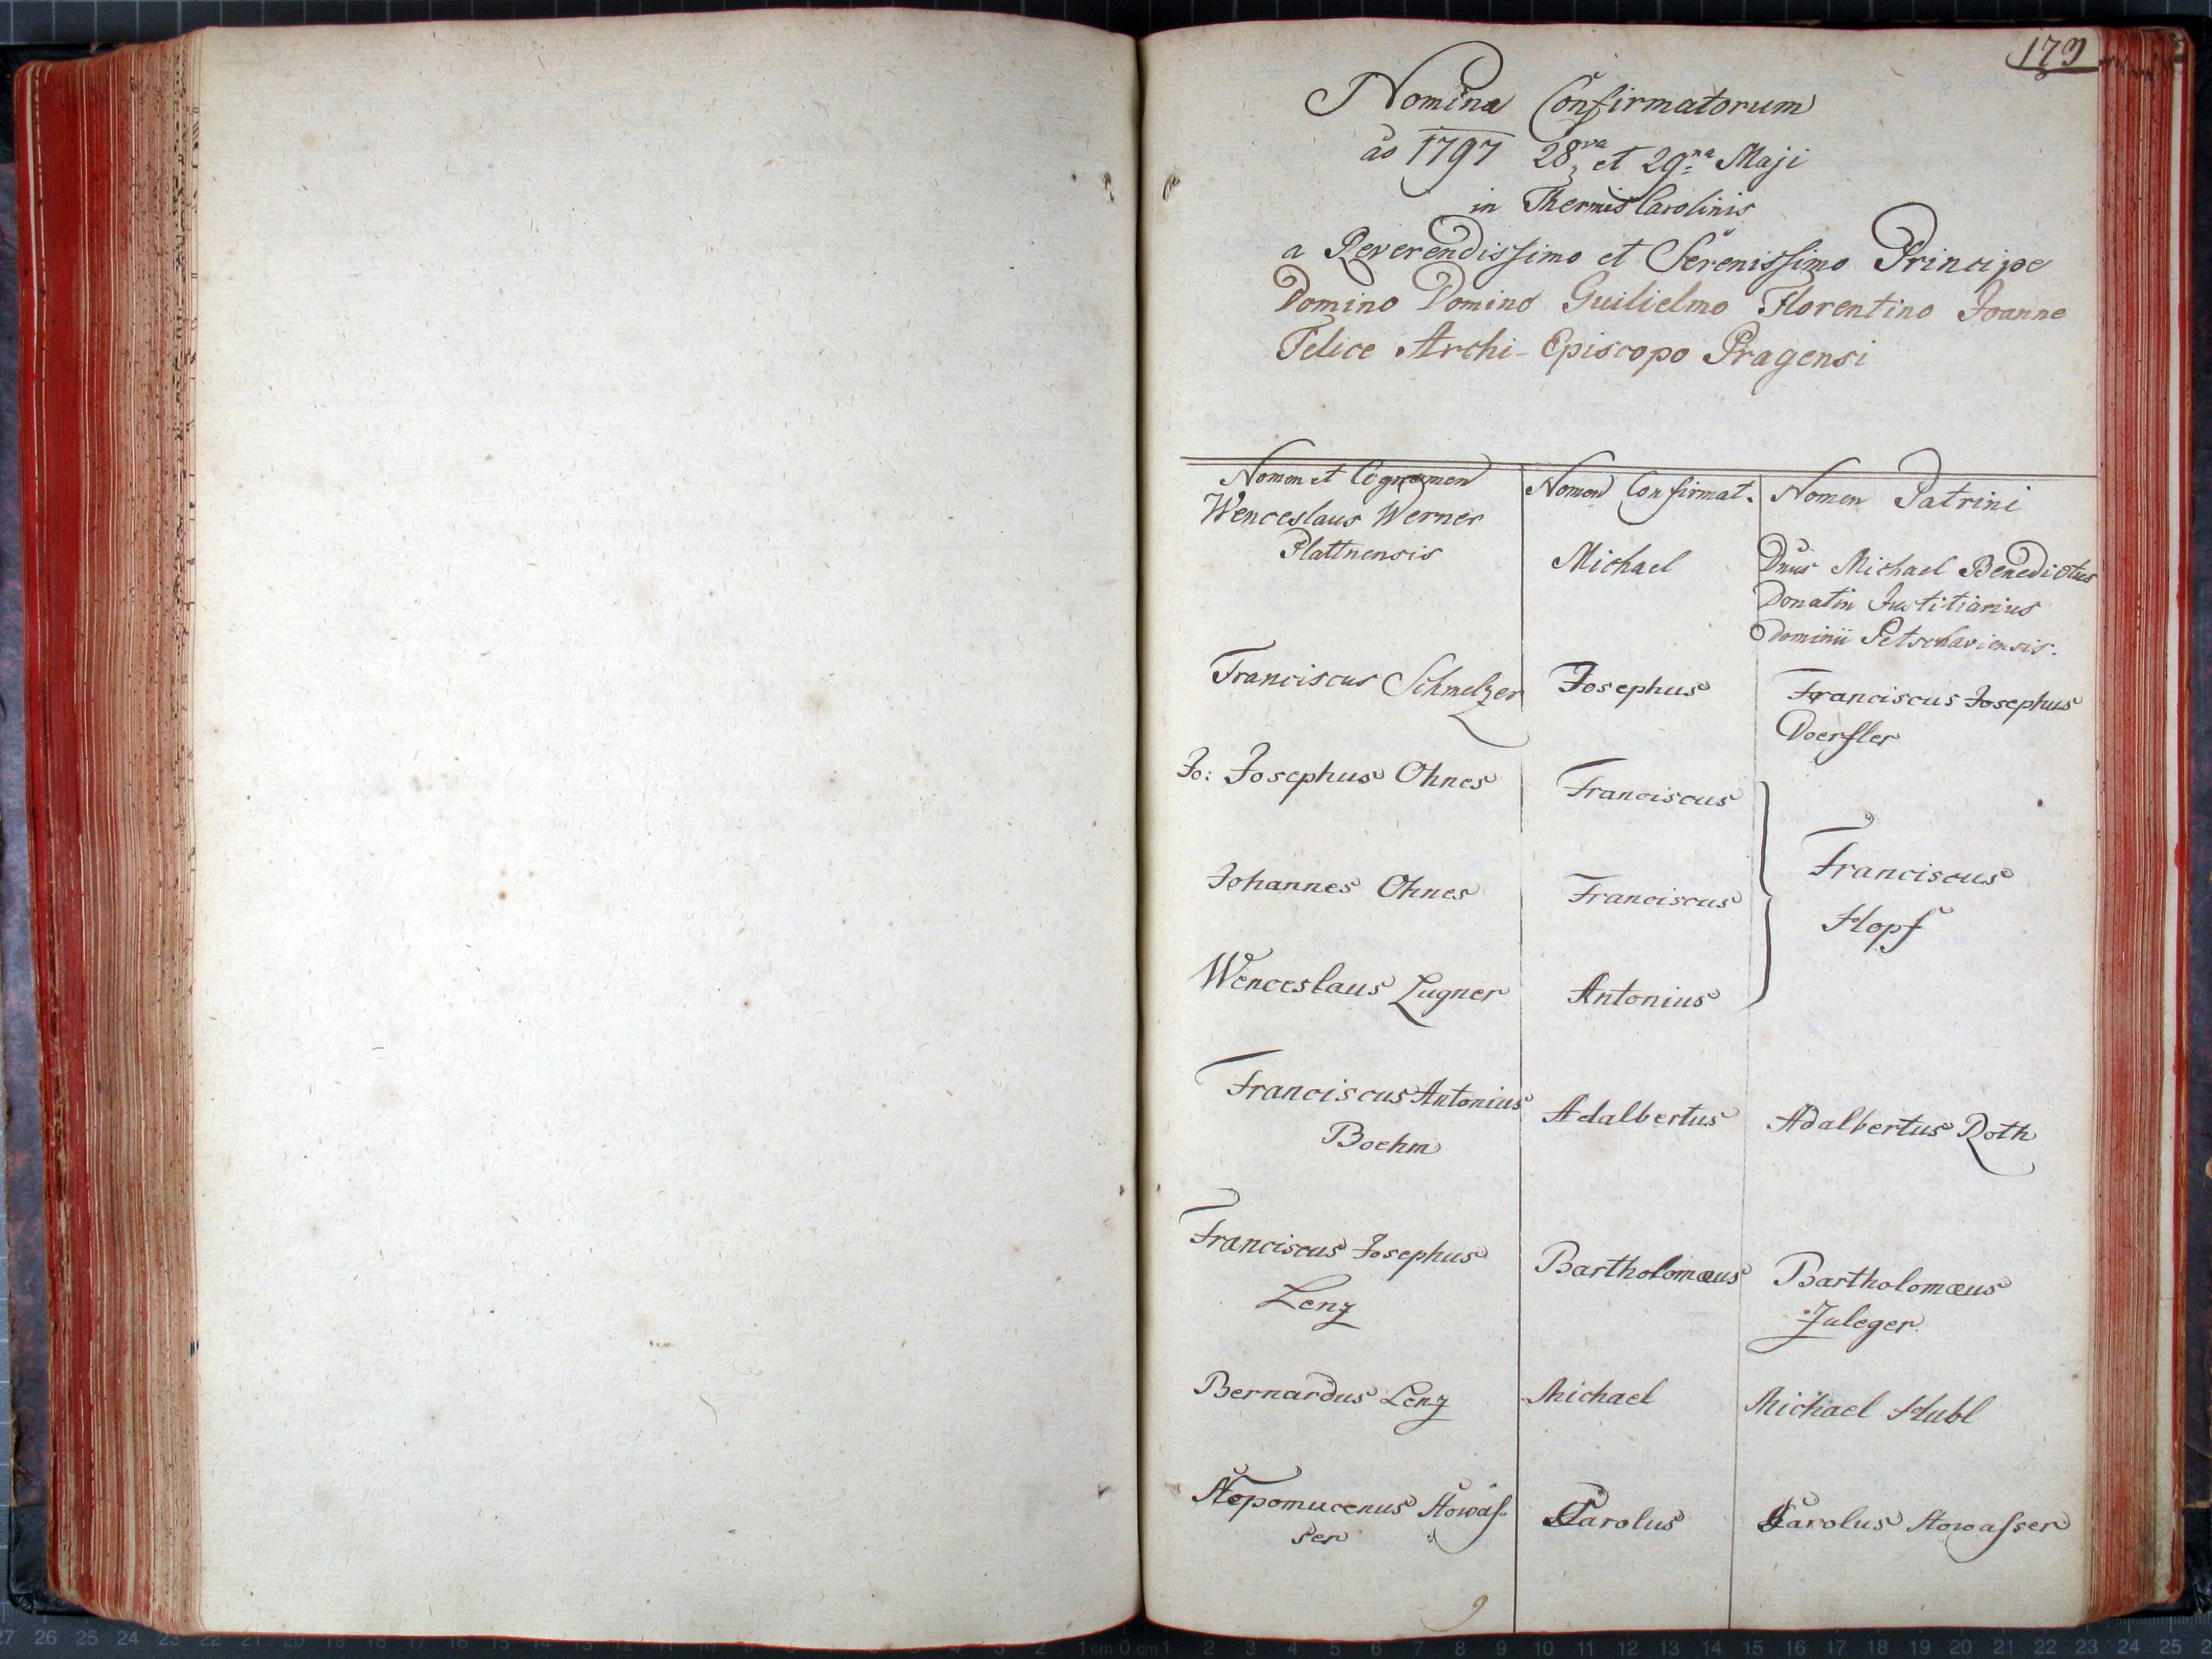 179
Nomina Confirmatorum
ão 1797 28va et 29na Maji
in Thermis Carolinis
a Reverendissimo et Serenissimo Principe
Domino Domino Guilielmo Florentino Joanne
Felice Archi-Episcopo Pragensi
Nomen et Cognomen
Nomen Confirmat.
Nomen Patrini
Wenceslaus Werner
Plattnensis
Michael
Dnus Michael Benedictus
Donatin Justitiarius
Dominii Petschaviensis.
Franciscus Schmelzer
Josephus
Franciscus Josephus
Doerfler
Jo: Josephus Ohnes
Franciscus
Johannes Ohnes
Franciscus
Franciscus
Hopf
Wenceslaus Lugner
Antonius
Franciscus Antonius
Boehm
Adalbertus
Adalbertus Roth
Franciscus Josephus
Lenz
Bartholomæus
Bartholomæus
Zuleger
Bernardus Lenz
Michael
Michael Hubl
Nepomucenus Stowas-
ser
Carolus
Carolus Stowasser
9
27 26 25 24 23 22 21 20 19 18 17 16 15 14 13 12 11 10 9 8 7 6 5 4 3 2 1 cm 0 cm 1 2 3 4 5 6 7 8 9 10 11 12 13 14 15 16 17 18 19 20 21 22 23 24 25